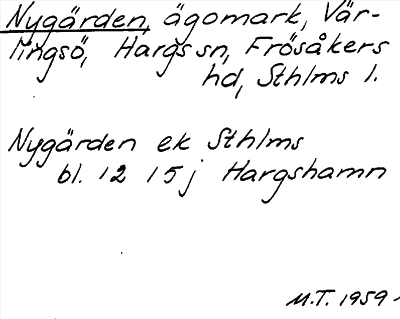 Nygärden, ägomark, Vär-
lingsö, Hargs sn, Frösåkers
hd, Sthlms l.
Nygärden ek Sthlms
bl. 12 15j Hargshamn
M.T. 1959